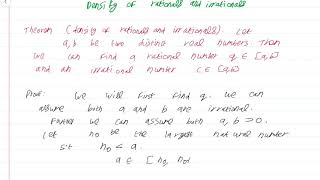 Density of rationals and irrationals
Theorem (density of rationals and irrationals). Let
a, b be two distinct real numbers. Then
we can find a rational number q ∈ [a,b]
and an irrational number c ∈ [a,b]
Proof: We will first find q. We can
assume both a and b are irrational.
Further we can assume both a, b > 0.
Let n0 be the largest natural number
s.t n0 < a.
a ∈ [n0, n0+